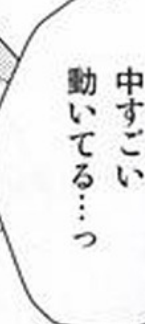 中すごい
動いてる…っ